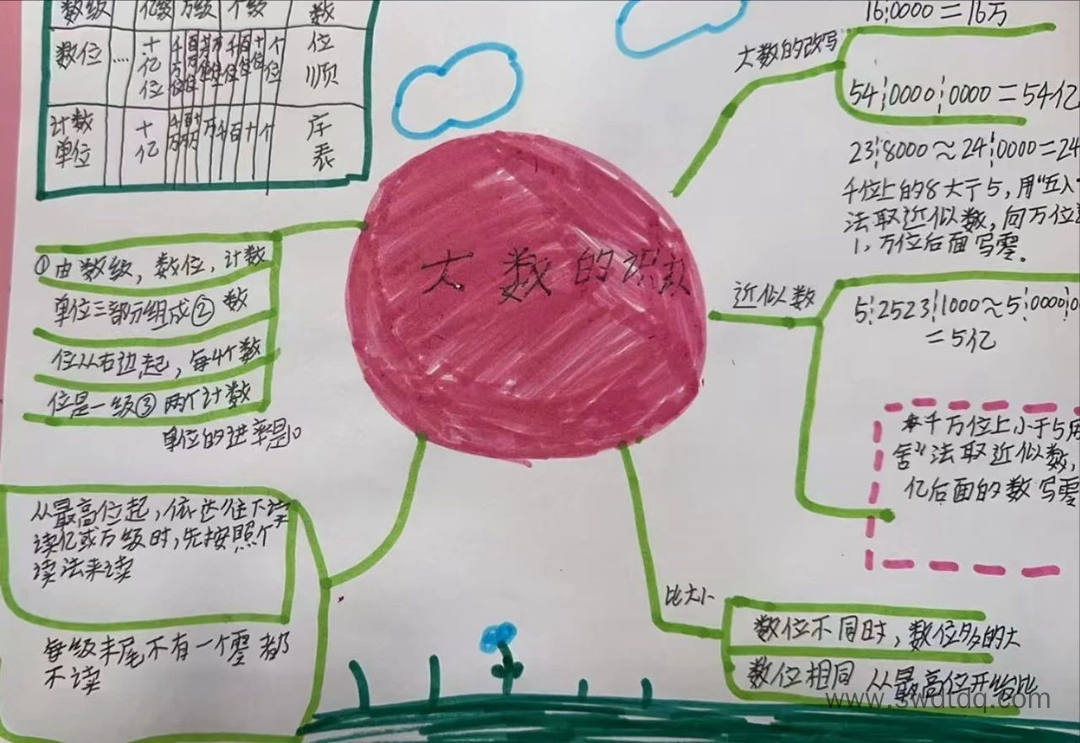 数级 亿级 万级 个级 数
数位 …… 十亿位 千万位 百万位 十万位 万位 千位 百位 十位 个位 位顺
计数单位 十亿 千万 百万 十万 万 千 百 十 个 序表
①由数级，数位，计数
单位三部分组成② 数
位从右边起，每4个数
位是一级③ 两个计数
单位的进率是10
从最高位起，依达往下读
读亿或万级时，先按照个
读法来读
每级末尾不有一个零都
不读
大数的识数
大数的改写
16¦0000＝16万
54¦0000¦0000＝54亿
23¦8000≈24¦0000＝24
千位上的8大于5，用“五入”
法取近似数，向万位
1，万位后面写零。
近似数
5¦2523¦1000≈5¦0000¦0
＝5亿
千万位上小于5用
舍”法取近似数，
亿后面的数写零
比大小
数位不同时，数位多的大
数位相同 从最高位开始比
www.swdtdq.com